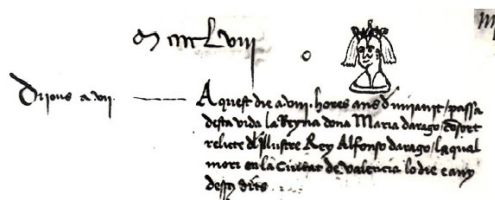 M CCCC L viii
Dijous a vii.
Aquest die a viii. hores ans d mijanit / passa
desta vida la Reyna dona Maria darago / consort
relicte dl Illustre Rey Alfonso darago / la qual
mori en la Ciutat de Valencia lo die e any
dessus dits